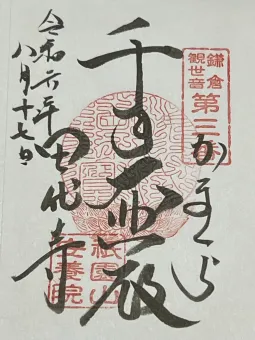 鎌倉
観世音
第三番
かまくら
千手
殿
田代寺
令和六年
八月十七日
祇園山
安養院